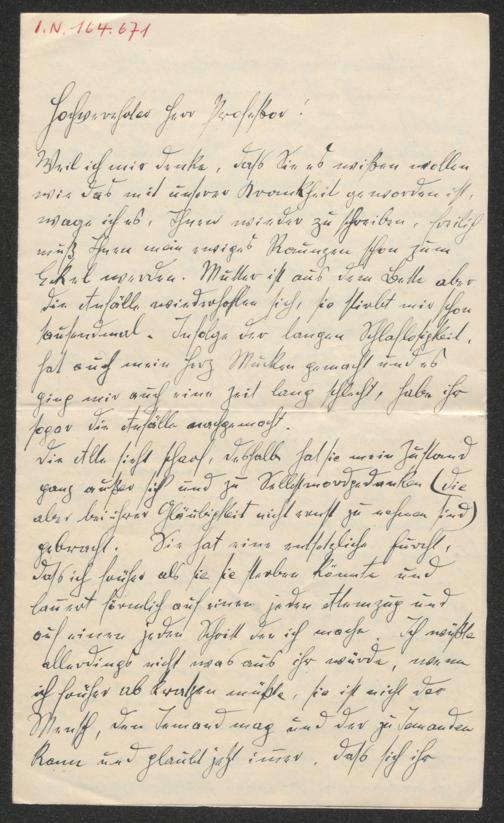 I.N. 164.671
Hochverehrter Herr Professor!
Weil ich mir denke, daß Sie es wißen wollen
wie das mit unserer Krankheit geworden ist,
wage ich es, Ihnen wieder zu schreiben, freilich
muß Ihnen mein ewiges Raunzen schon zum
Ekel werden. Mutter ist aus dem Bette aber
die Anfälle wiederholten sich, sie stirbt mir schon
tausendmal. Infolge der langen Schlaflosigkeit,
hat auch mein Herz Mucken gemacht und es
ging mir auch eine Zeit lang schlecht, habe ihr
sogar die Anfälle nachgemacht.
Die Alte sieht scharf, deshalb hat sie mein Zustand
ganz außer sich und zu Selbstmordgedanken (die
aber bei ihrer Gläubigkeit nicht ernst zu nehmen sind)
gebracht. Sie hat eine entsetzliche Furcht,
daß ich früher als sie sterben könnte und
lauert förmlich auf einen jeden Atemzug und
auf einen jeden Schritt den ich mache. Ich wüßte
allerdings nicht was aus ihr würde, wenn
ich früher abkratzen müßte, sie ist nicht der
Mensch, den Jemand mag und der zu Jemanden
kann und glaubt jetzt immer, daß sich ihr